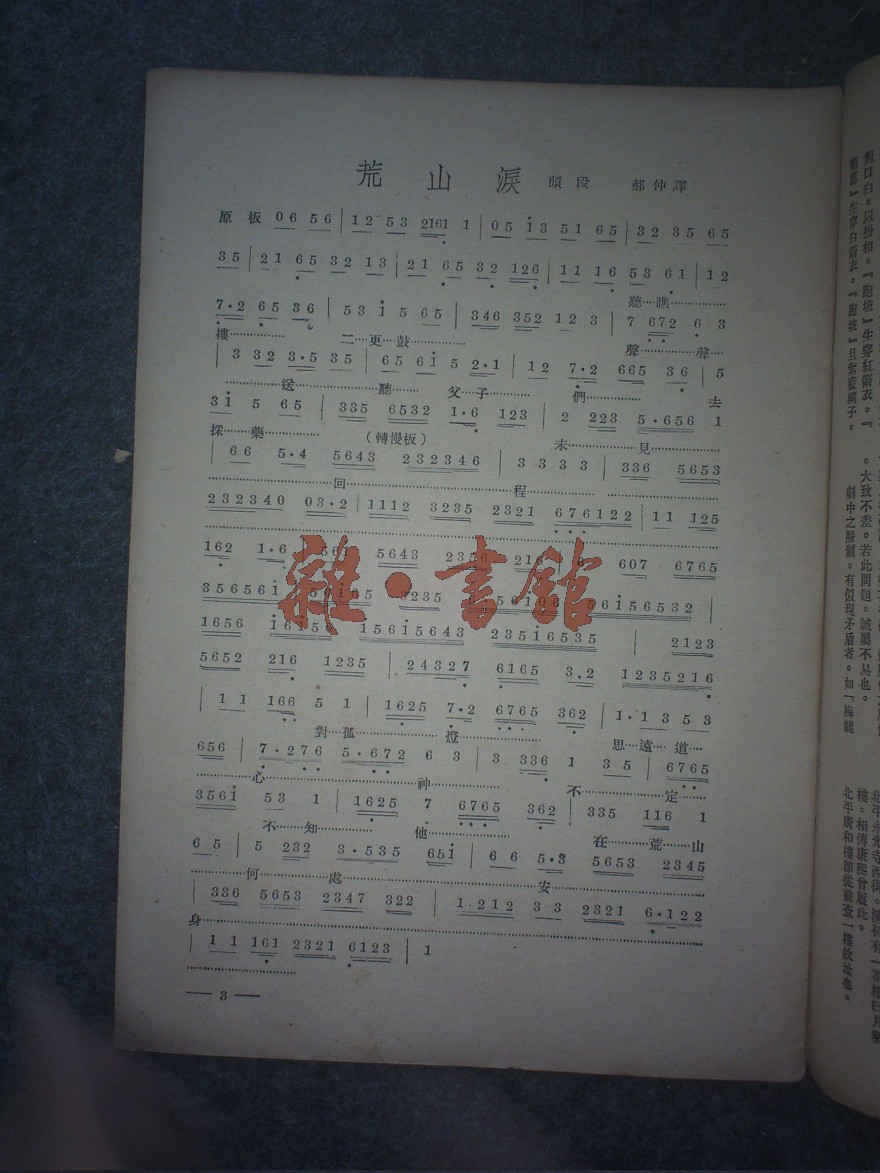 荒山淚 頭段 郝仲譯
原板 0 6 5 6 | 1 2 5 3 2161 1 | 0 5 i 3 5 1 6 5 | 3 2 3 5 6 5
3 5 | 2 1 6 5 3 2 1 3 | 2 1 6 5 3 2 1 2 6 | 1 1 1 6 5 3 6 1 | 1 2
聽…瞧
7·2 6 5 3 6 | 5 3 i 5 6 5 | 3 4 6 3 5 2 1 2 3 | 7 6 7 2 6 3
樓 二…更…鼓 聲…聲
| 3 3 2 3·5 3 5 | 6 5 6 i 5 2·1 | 1 2 7·2 6 6 5 3 6 | 5
送 聽 父…子 們 去
3 i 5 6 5 | 3 3 5 6 5 3 2 1·6 1 2 3 | 2 2 2 3 5·6 5 6 1
採…藥 (轉慢板) 未…見
| 6 6 5·4 5 6 4 3 2 3 2 3 4 6 | 3 3 3 3 | 3 3 6 5 6 5 3
回 程
2 3 2 3 4 0 0 3·2 | 1 1 1 2 3 2 3 5 2 3 2 1 6 7 6 1 2 2 | 1 1 1 2 5
1 6 2 1·6 5 6 4 3 6 0 7 6 7 6 5
3 5 6 5 6 i 3 2 3 5 5 6 i 5 6 5 3 2 |
1 6 5 6 1 5 6 i 5 6 4 3 2 3 5 i 6 5 3 5 | 2 1 2 3
5 6 5 2 2 1 6 1 2 3 5 | 2 4 3 2 7 6 1 6 5 3·2 1 2 3 5 2 1 6
| 1 1 1 6 6 5 1 | 1 6 2 5 7·2 6 7 6 5 3 6 2 | 1·1 3 5 3
對…孤 燈 思…遠…道
6 5 6 | 7·2 7 6 5·6 7 2 6 3 | 3 3 3 6 1 3 5 | 6 7 6 5
心 神 不…定
3 5 6 i 5 3 1 | 1 6 2 5 7 6 7 6 5 3 6 2 | 3 3 5 1 1 6 1
不…知 他 在…荒…山
6 5 | 5 2 3 2 3·5 3 5 6 5 i | 6 6 5·3 5 6 5 3 2 3 4 5
何 處 安
| 3 3 6 5 6 5 3 2 3 4 7 3 2 2 | 1·2 1 2 3 3 2 3 2 1 6·1 2 2
身
| 1 1 1 6 1 2 3 2 1 6 1 2 3 | 1
— 3 —
雜·書館
對口白。以扮相。『跑坡』生穿紅箭衣。『
。大致不差。若此問題。誠屬不易也。
劇中之服制。有似現矛盾者。如「梅龍
樓。相傳康熙曾履此。
北平廣和樓卽從前查一樓故址也。